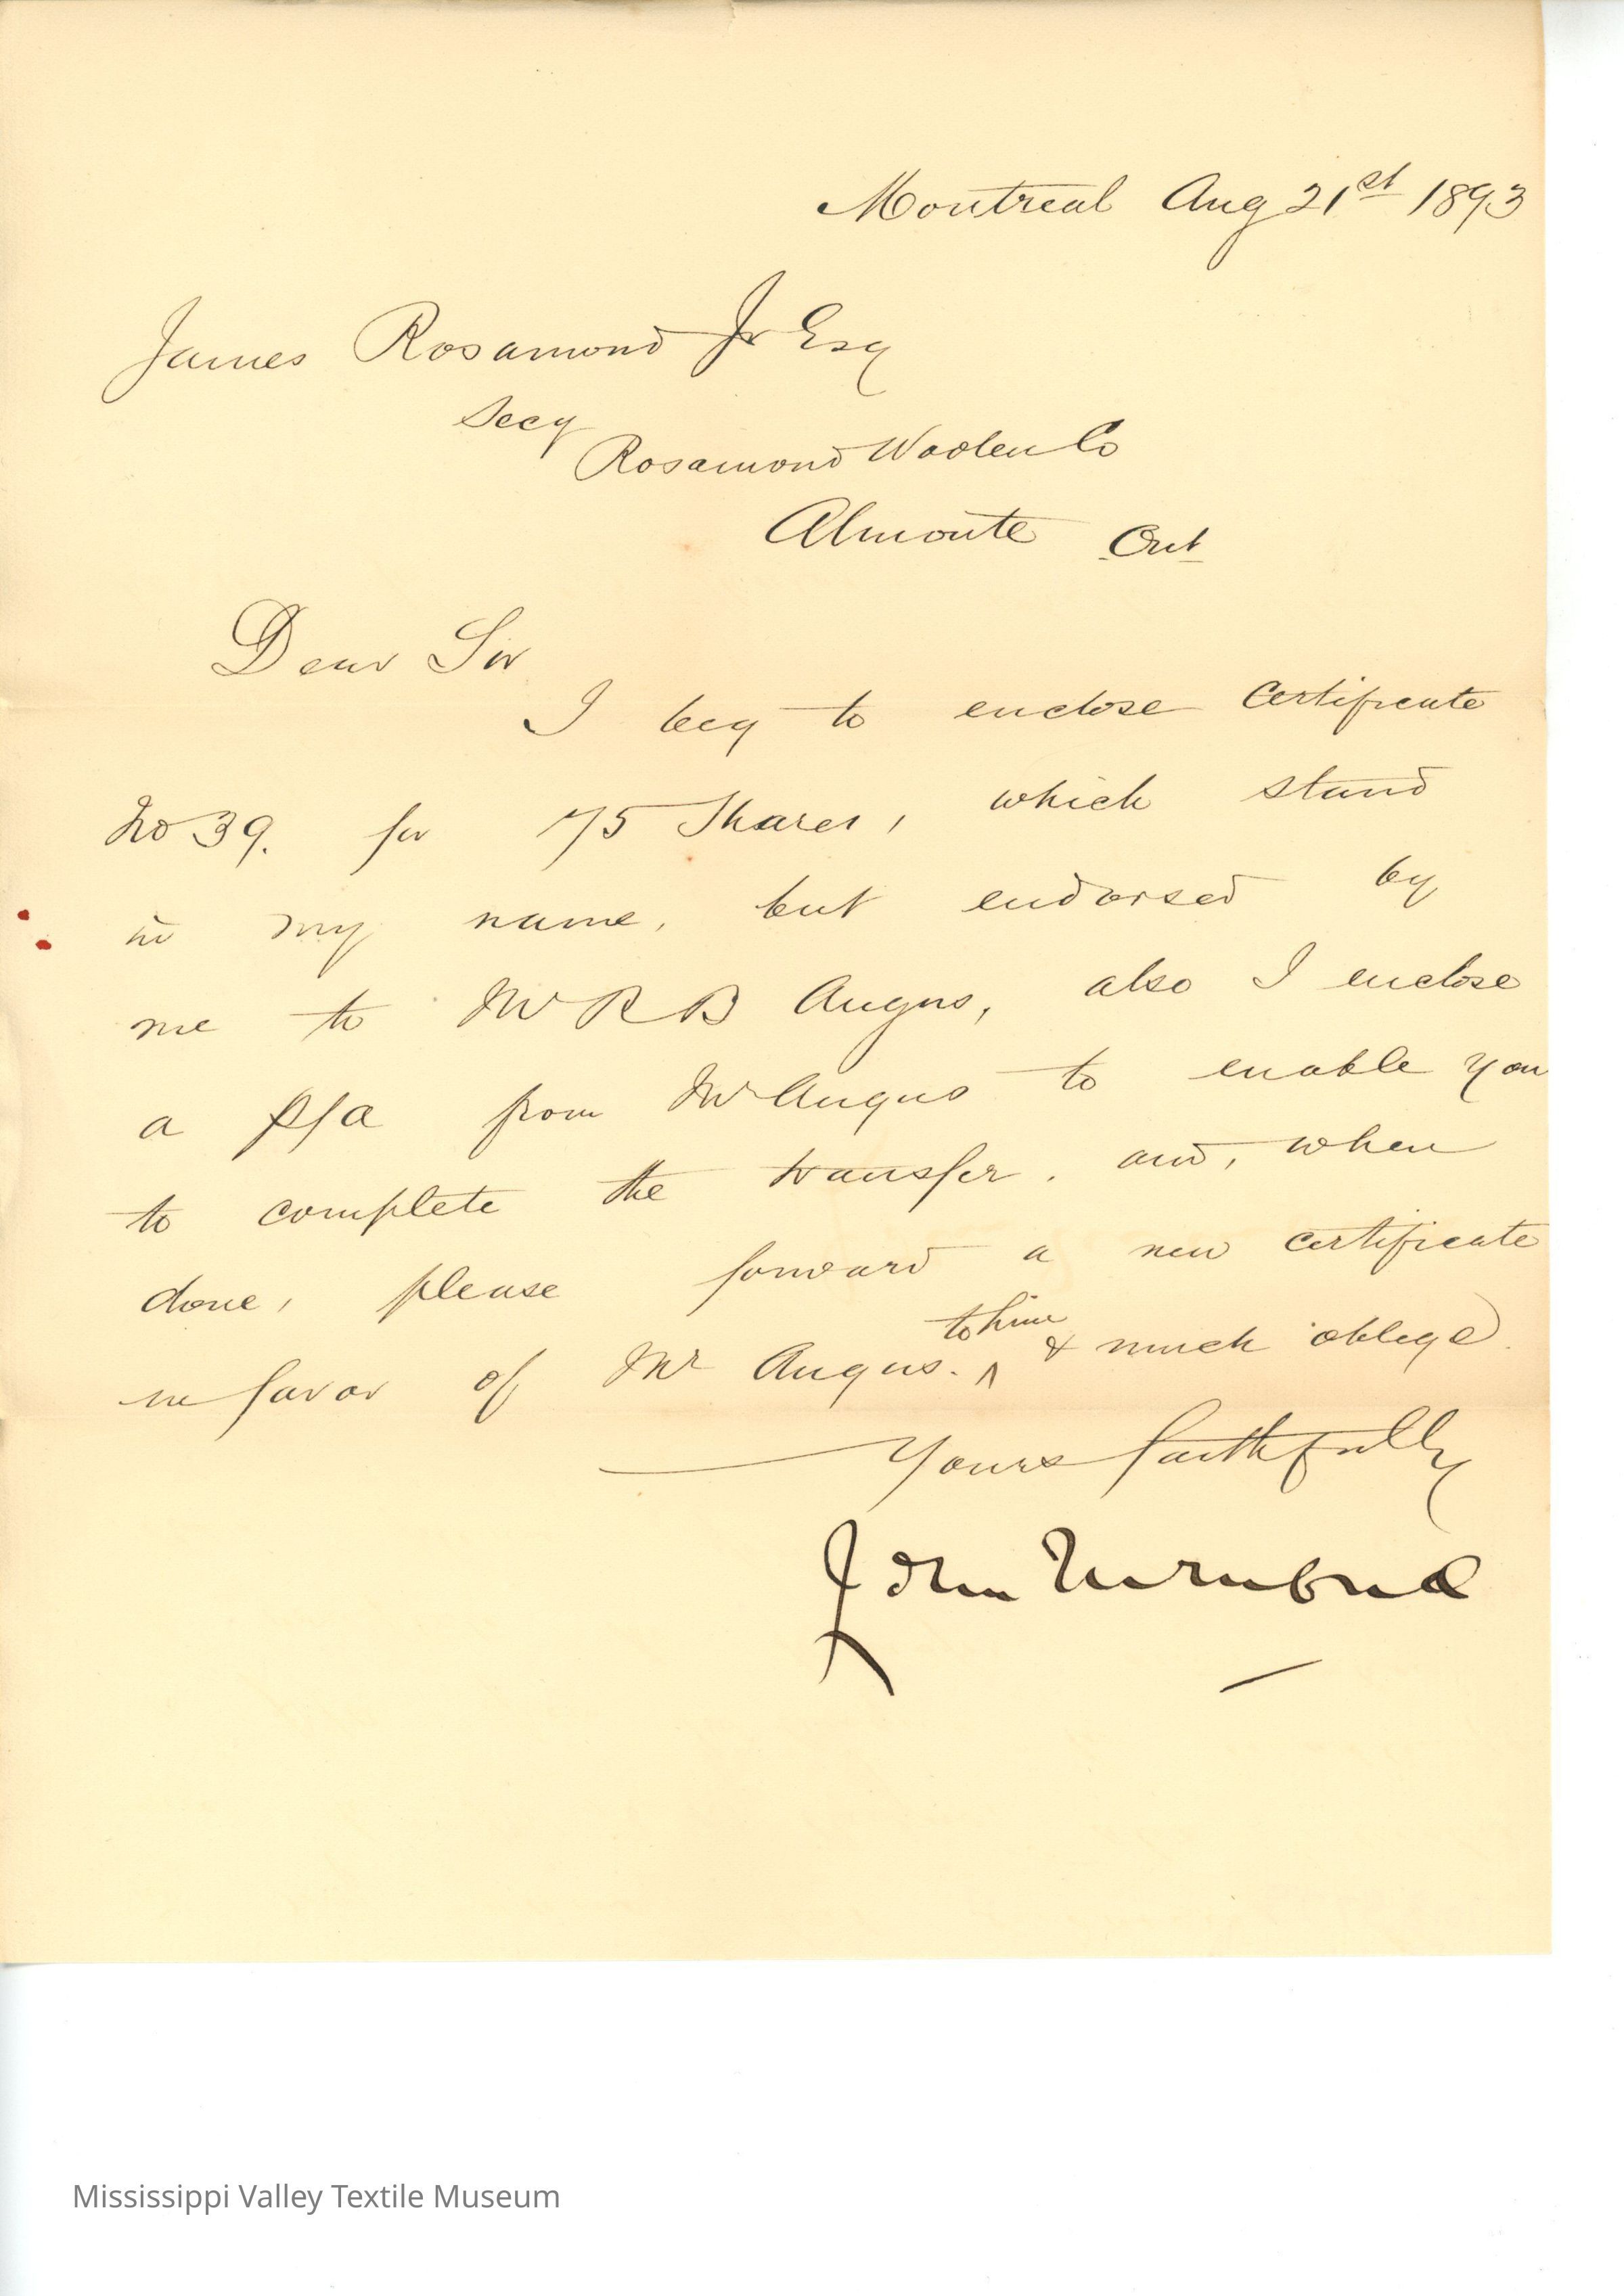 Montreal Aug 21st 1893
James Rosamond Jr Esq
Secy
Rosamond Woolen Co
Almonte Ont
Dear Sir
I beg to enclose Certificate
No 39. for 75 Shares, which stand
in my name, but endorsed by
me to Mr R B Angus, also I enclose
a P/a from Mr Angus to enable you
to complete the transfer. and, when
done, please forward a new certificate
in favor of Mr Angus. ^ to him & much oblige
Yours faithfully
John Turnbull
Mississippi Valley Textile Museum